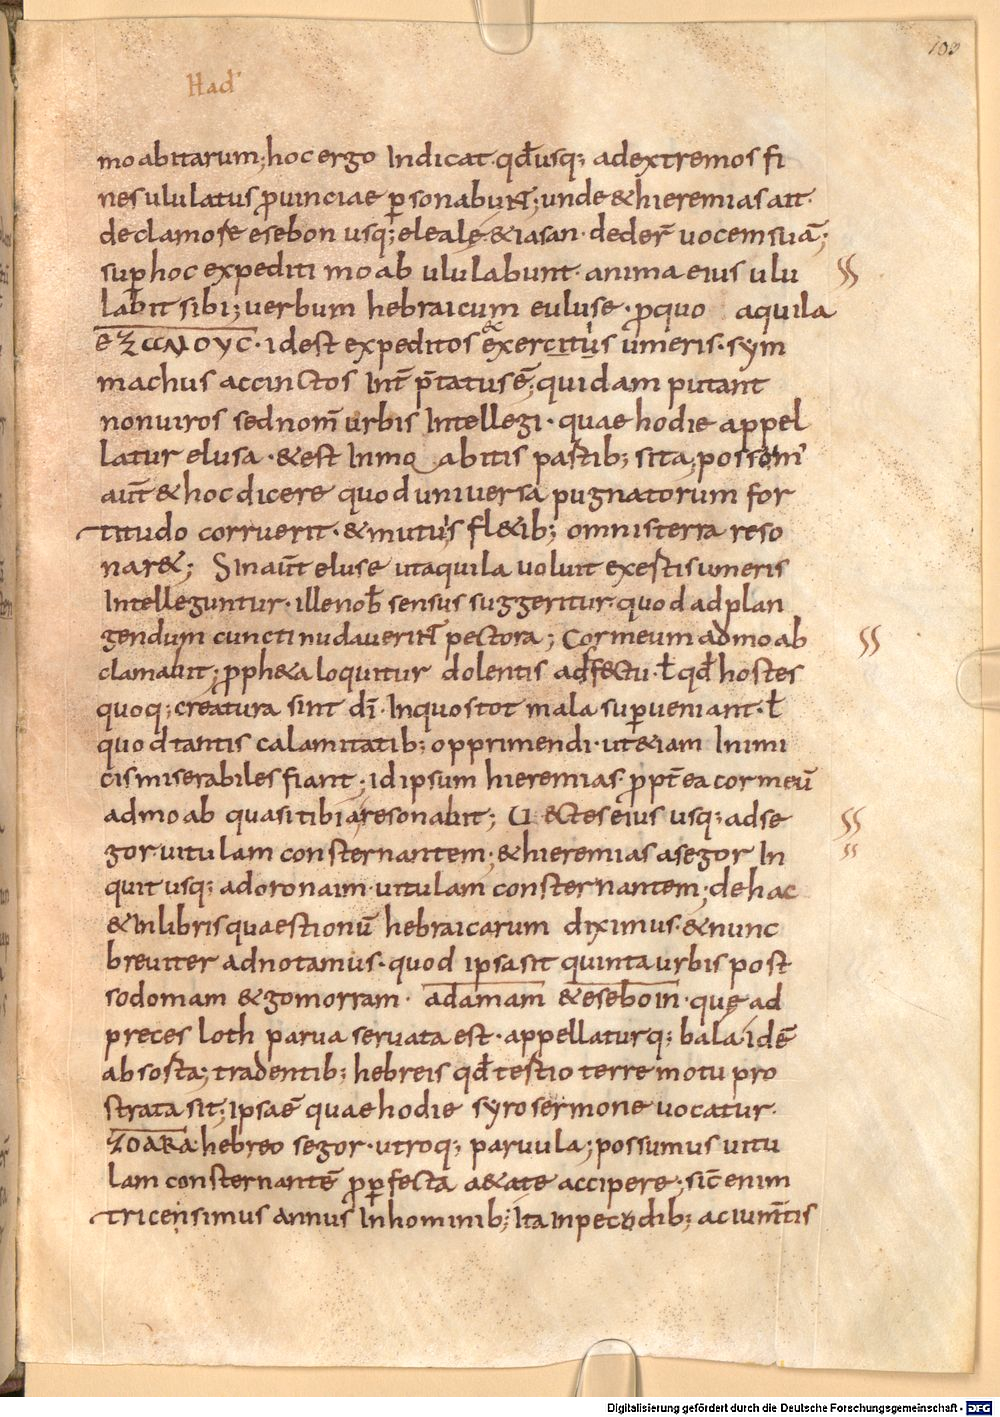 100
Had'
moabitarum; hoc ergo Indicat· qđ usq; adextremos fi
nes ululatus ꝓuinciae ꝑsonabunt; unde & hieremias ait·
declamore esebon usq; eleale· & iasan· dedeŕ uocem suā;
suꝑ hoc expediti moab ululabunt· anima eius ulu
labit sibi; uerbum hebraicum euluse· ꝓquo aquila
eƷωΝΟΥC· idest expeditos & exercitus umeris· sym
machus accinctos Int̄ p̄tatus ē; quidam putant
nonuiros sed nom̄ urbis Intellegi· quae hodie appel
latur elusa· & est Inmo abitis partib; sita; possom'
aut̄ & hoc dicere quod uniuersa pugnatorum for
titudo corruerit· & mutuis fl&ib; omnis terra reso
nar&; Sinaut̄ eluse utaquila uoluit exestis umeris
Intelleguntur· ille nob̄ sensus suggeritur· quod ad plan
gendum cuncti nudauerint pectora; Cor meum ad moab
clamauit; ꝓph&a loquitur dolentis adf&tu· ł qđ hostes
quoq; creatura sint dī· Inquos tot mala suꝑueniant· ł
quod tantis calamitatib; opprimendi· ut &iam Inimi
cis miserabiles fiant; id ipsum hieremias ꝓpt̄ea cor meū
ad moab quasi tibia resonabit; U&ctes eius usq; ad se
gor uitulam consternantem; & hieremias a segor In
quit usq; ad oronaim uitulam consternantem; de hac
& In libris quaestionū hebraicarum diximus· & nunc
breuiter adnotamus· quod ipsa sit quinta urbis post
sodomam & gomorram· adamam & eseboin· quę ad
preces loth parua seruata est· appellaturq; bala· id ē
absorta; tradentib; hebreis qđ testio terre motu pro
strata sit; ipsa ē quae hodie syro sermone uocatur·
ƷOARA hebreo segor· utroq; paruula; possumus uitu
lam consternantē ꝓꝑfecta a&ate accipere; sic̄ enim
tricensimus annus In hominib; Ita In pecodib; ac ium̄tis
Digitalisierung gefördert durch die Deutsche Forschungsgemeinschaft - DFG